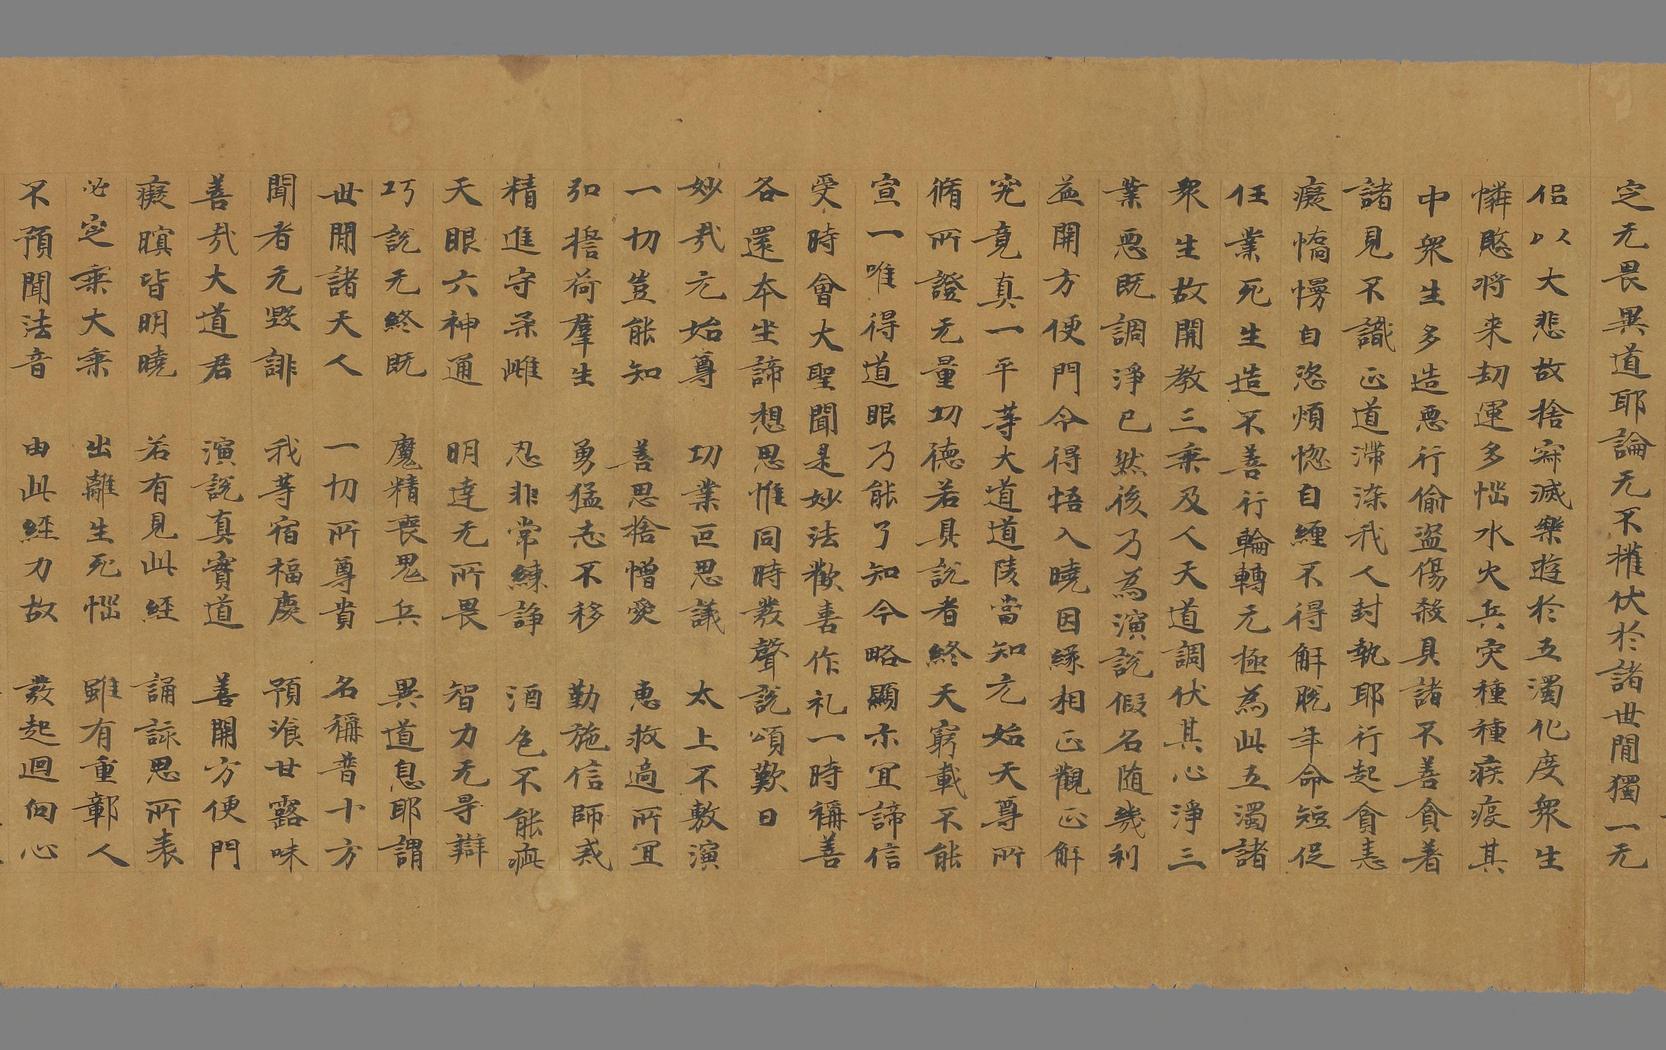 定无畏異道耶論无不摧伏於諸世間獨一无
侶以大悲故捨寂滅樂遊於五濁化度衆生
憐愍将来劫運多惱水火兵灾種種疾疫其
中衆生多造悪行偷盗傷煞具諸不善貪著
諸見不識正道滯染我人封執耶行起貪恚
癡憍慢自恣煩惚自纏不得解脱年命短促
任業死生造不善行輪轉无極為此五濁諸
衆生故開教三乘及人天道調伏其心淨三
業悪既調淨已然後乃為演説假名随幾利
益開方便門令得悟入曉因緣相正觀正解
究竟真一平等大道道陵當知元始天尊所
脩所證无量功德若具説者終天窮載不能
宣一唯得道眼乃能了知今略顯示宜諦信
受時會大聖聞是妙法歡喜作礼一時稱善
各還本坐諦想思惟同時發聲説頌歎曰
妙㢤元始尊 功業叵思議 太上不敷演
一切豈能知 善思捨憎愛 恵救適所宜
弘擔荷羣生 勇猛志不移 勤施信師戒
精進守柔雌 忍非常練諍 酒色不能疵
天眼六神通 明達无所畏 智力无㝵辯
巧説无終既 魔精喪鬼兵 異道息耶謂
世間諸天人 一切所尊貴 名稱普十方
聞者无毀誹 我等宿福慶 預飡甘露味
善㢤大道君 演説真實道 善開方便門
癡瞑皆明曉 若有見此經 誦詠思所表
必定乘大乘 出離生死惱 雖有重鄣人
不預聞法音 由此經力故 發起迴向心